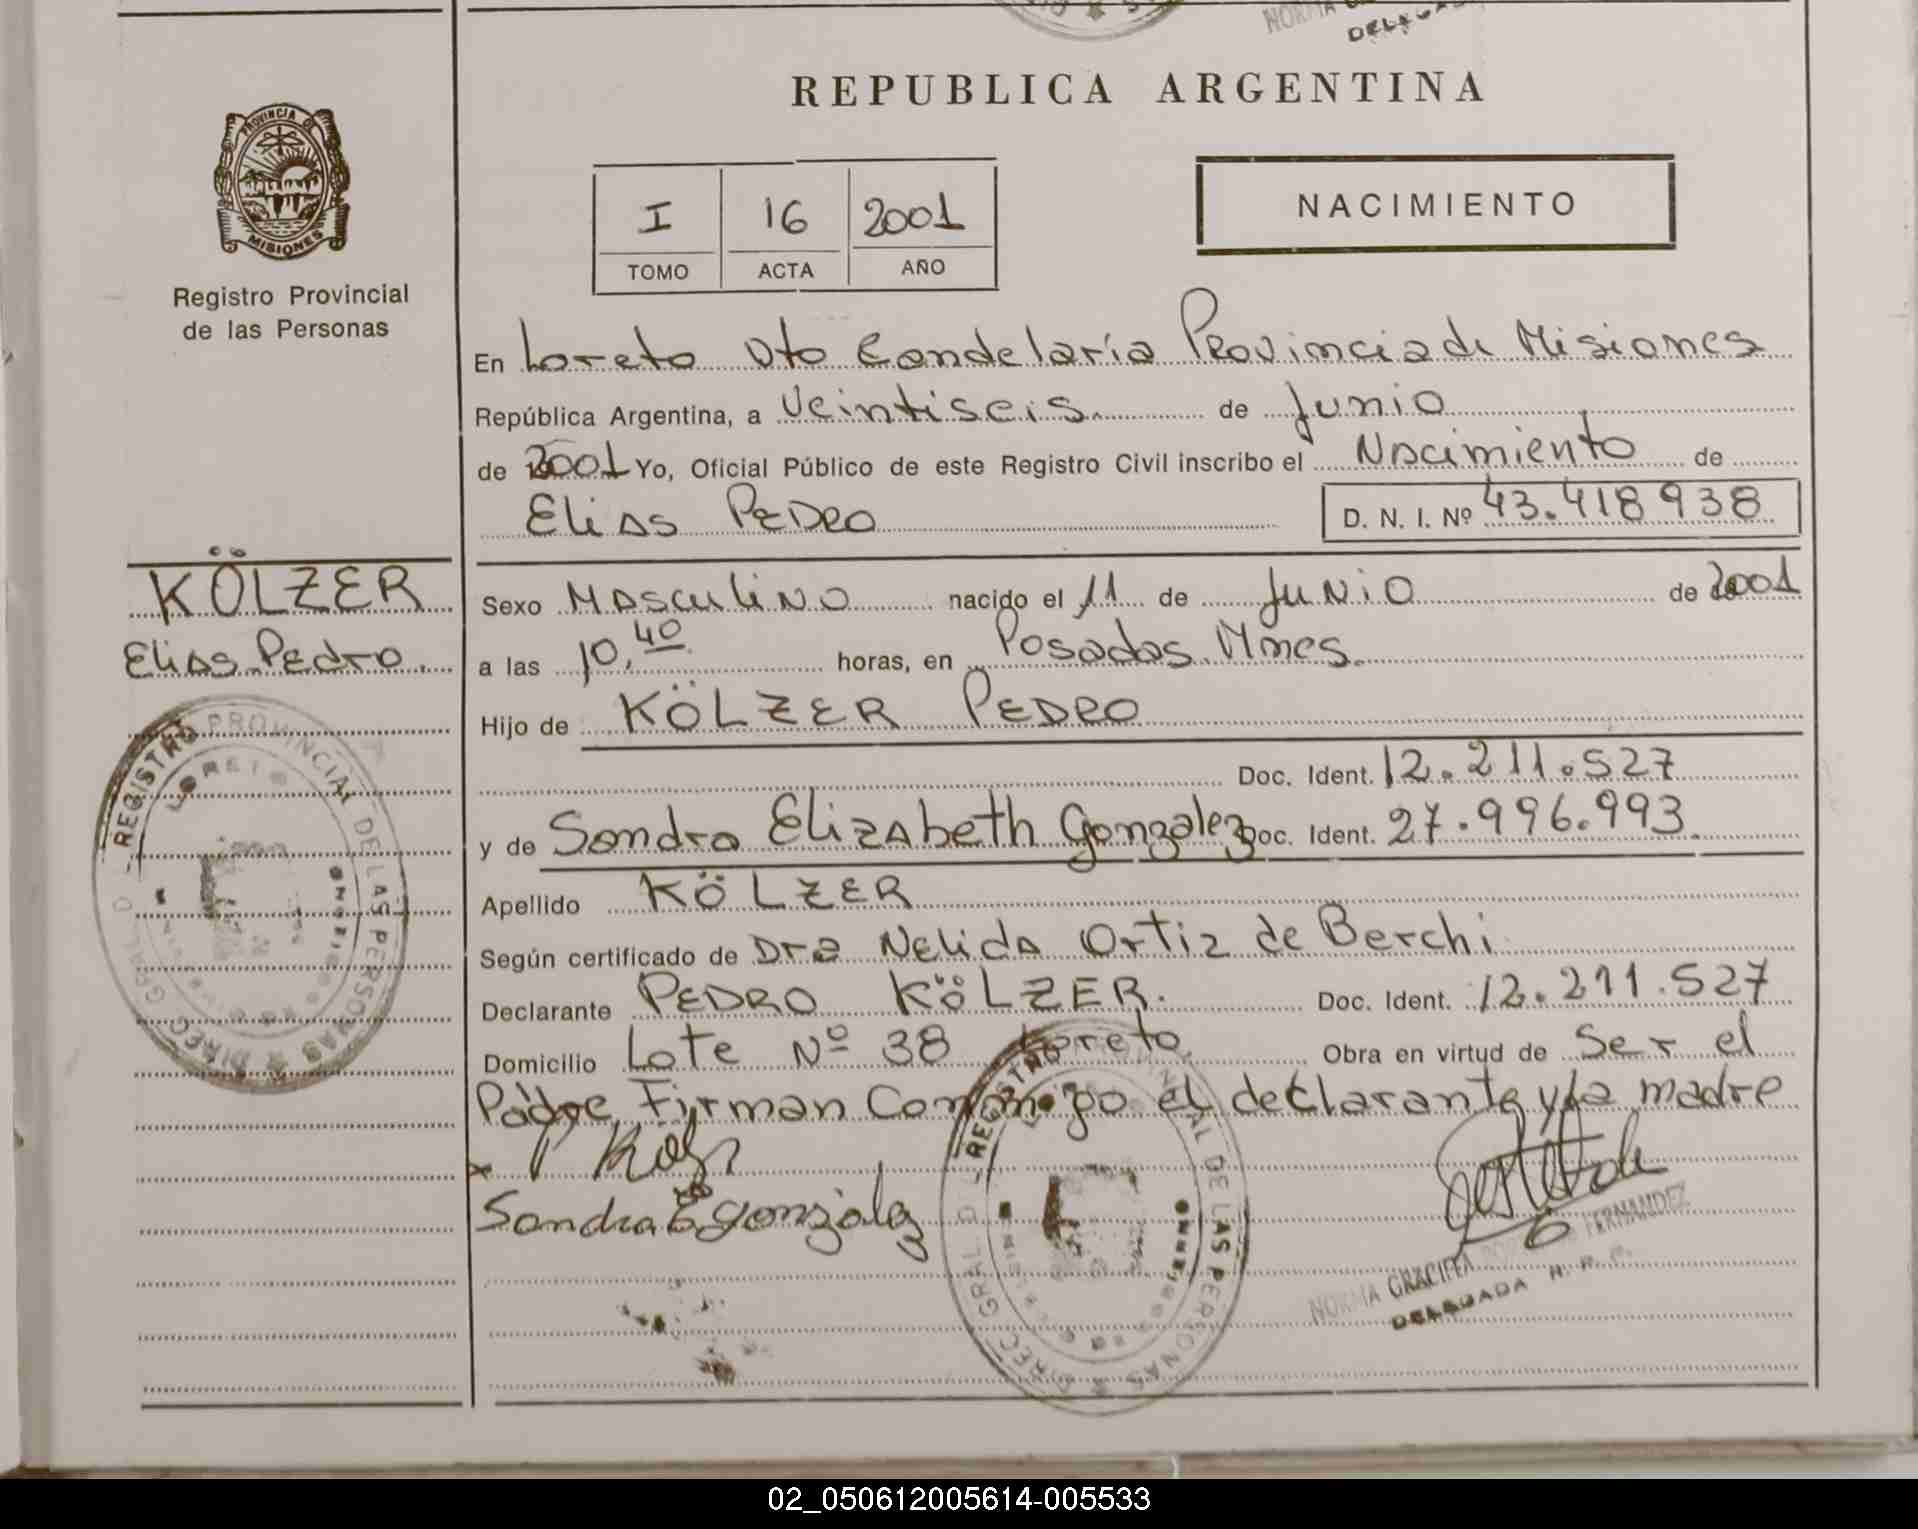 NORMA
DELEGA
REPUBLICA ARGENTINA
PROVINCIA DE
MISIONES
Registro Provincial
de las Personas
I 16 2001
TOMO ACTA AÑO
NACIMIENTO
En Loreto Dto Candelaria Provincia de Misiones
República Argentina, a Veintiseis de Junio
de 2001 Yo, Oficial Público de este Registro Civil inscribo el Nacimiento de
Elias PEDRO D. N. I. Nº 43.418938
KÖLZER
Elias Pedro.
Sexo Masculino nacido el 11 de Junio de 2001
a las 10,40 horas, en Posadas Mnes.
Hijo de KÖLZER PEDRO
Doc. Ident. 12.211.527
y de Sandra Elizabeth Gonzalez Doc. Ident. 27.996.993.
Apellido KÖLZER
Según certificado de Dra Nelida Ortiz de Berchi
Declarante PEDRO KÖLZER. Doc. Ident. 12.211.527
Domicilio Lote Nº 38 Loreto. Obra en virtud de Ser el
Padre, Firman Conmigo el declarante y la madre
Sandra E gonzález
REGISTRO PROVINCIAL DE LAS PERSONAS ★ DIREC. GRAL. D
LORETO
MISIONES
REGISTRO PROVINCIAL DE LAS PERSONAS ★ DIREC. GRAL. D
MISIONES
NORMA GRACIELA FERNANDEZ
DELEGADA R. P.
02_050612005614-005533